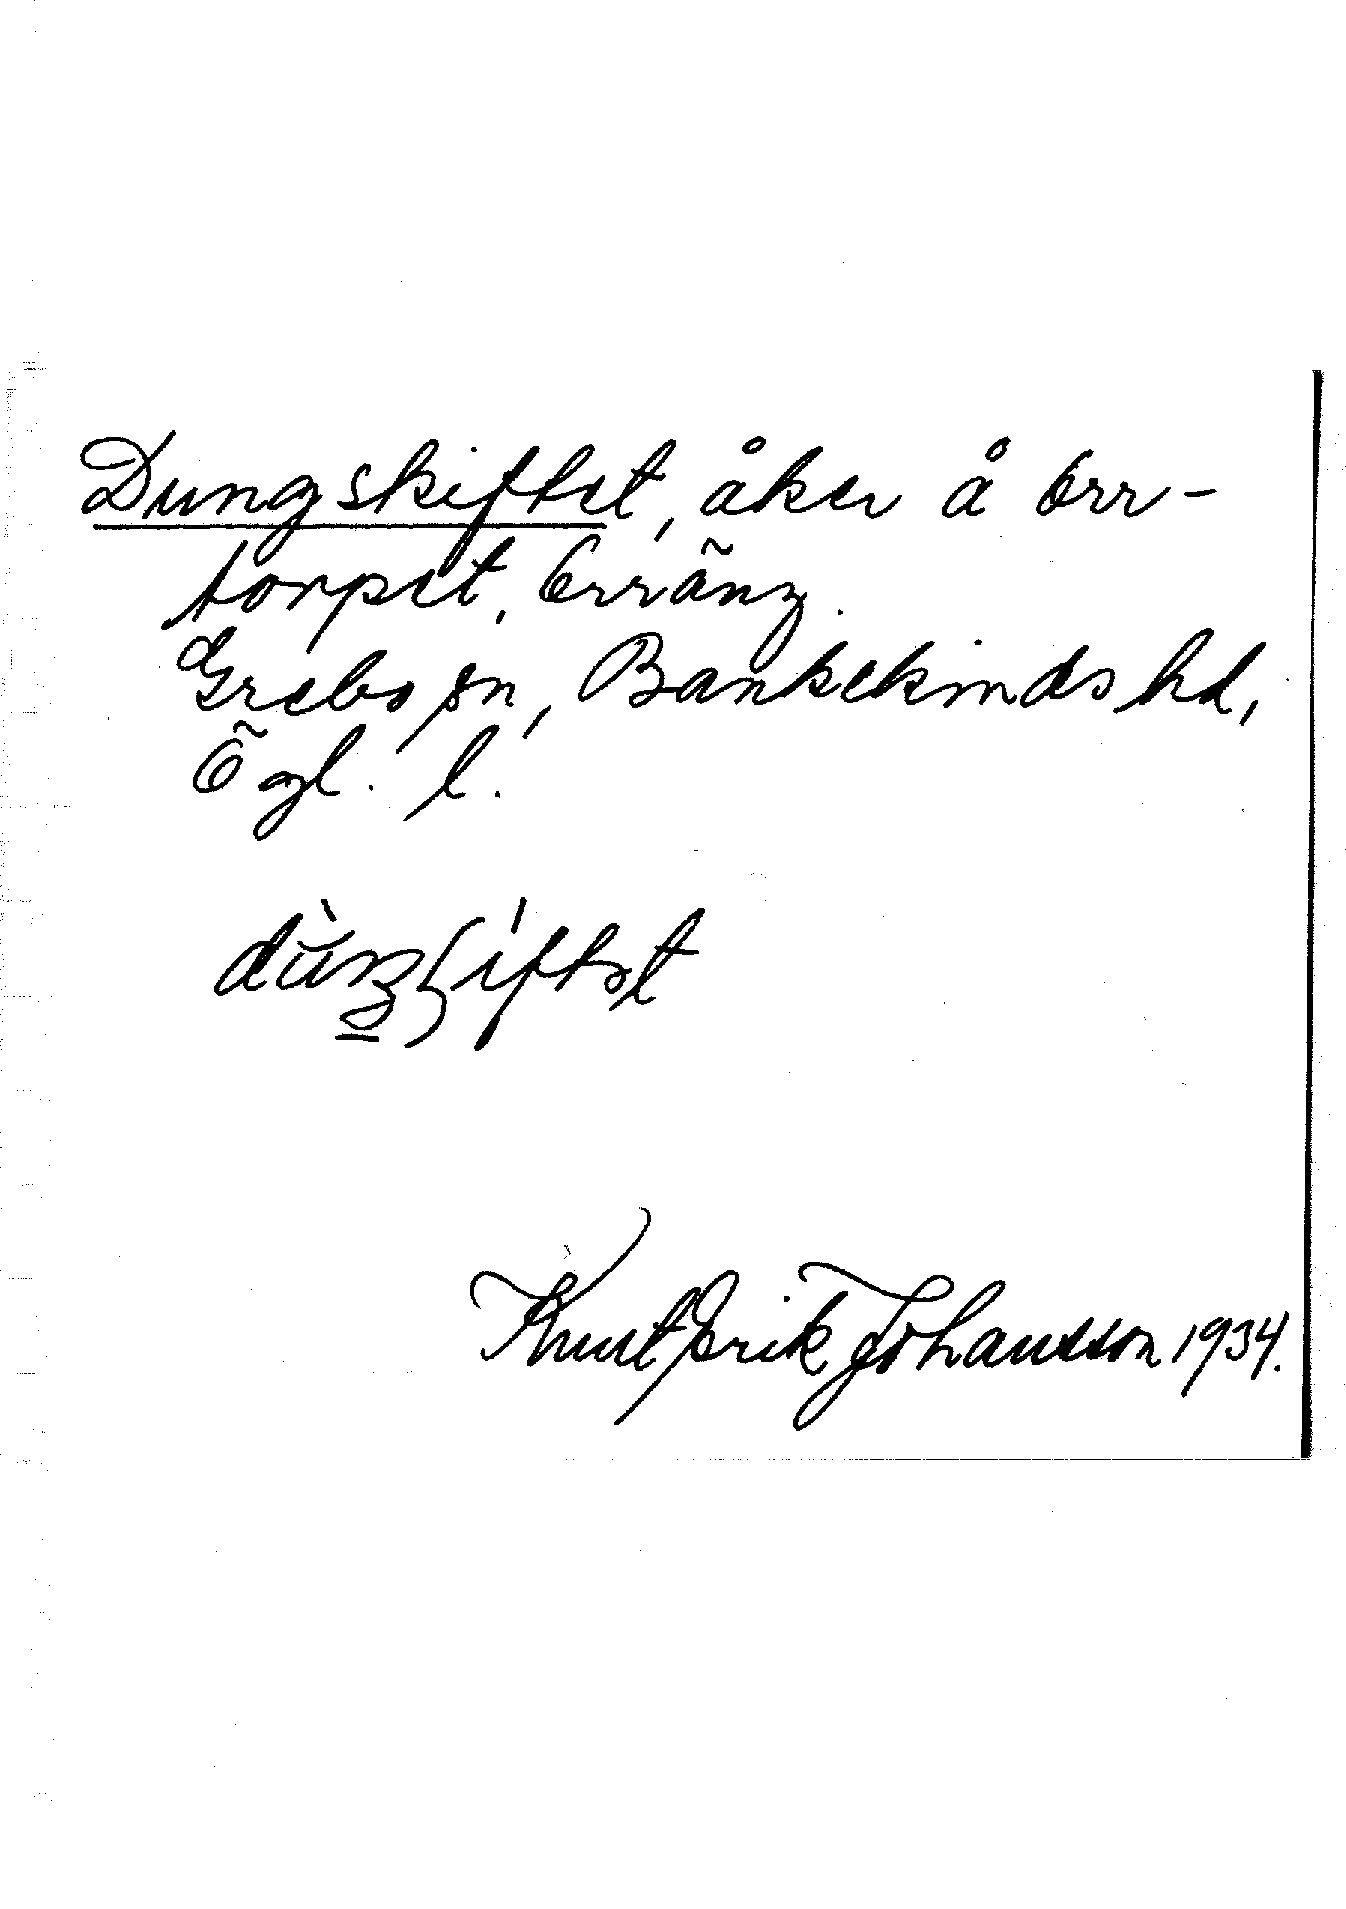 Dungskiftet, åker å Orr-
torpet, Orräng.
Grebo sn, Bankekinds hd,
Ögl. l.
Knut Erik Johansson 1934.